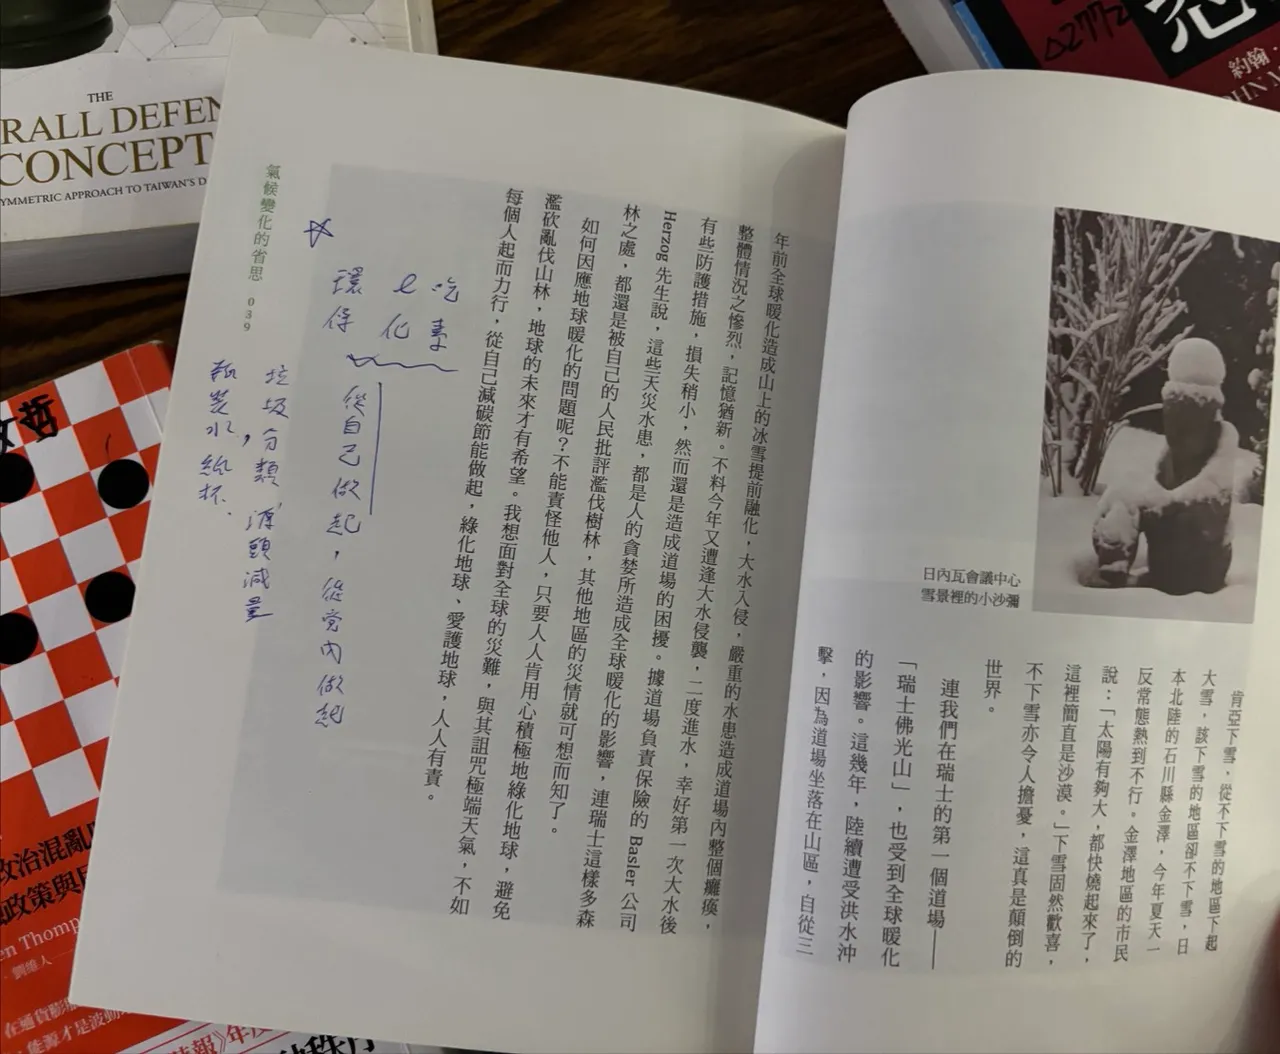 THE
RALL DEFEN
CONCEPT
YMMETRIC APPROACH TO TAIWAN'S D
△2772
恐
約翰・
OHN M
日內瓦會議中心
雪景裡的小沙彌
肯亞下雪，從不下雪的地區下起
大雪，該下雪的地區卻不下雪，日
本北陸的石川縣金澤，今年夏天一
反常態熱到不行。金澤地區的市民
說：「太陽有夠大，都快燒起來了，
這裡簡直是沙漠。」下雪固然歡喜，
不下雪亦令人擔憂，這真是顛倒的
世界。
連我們在瑞士的第一個道場——
「瑞士佛光山」，也受到全球暖化
的影響。這幾年，陸續遭受洪水沖
擊，因為道場坐落在山區，自從三
年前全球暖化造成山上的冰雪提前融化，大水入侵，嚴重的水患造成道場內整個癱瘓，
整體情況之慘烈，記憶猶新。不料今年又遭逢大水侵襲，二度進水，幸好第一次大水後
有些防護措施，損失稍小，然而還是造成道場的困擾。據道場負責保險的 Basler 公司
Herzog 先生說，這些天災水患，都是人的貪婪所造成全球暖化的影響，連瑞士這樣多森
林之處，都還是被自己的人民批評濫伐樹林，其他地區的災情就可想而知了。
如何因應地球暖化的問題呢？不能責怪他人，只要人人肯用心積極地綠化地球，避免
濫砍亂伐山林，地球的未來才有希望。我想面對全球的災難，與其詛咒極端天氣，不如
每個人起而力行，從自己減碳節能做起，綠化地球、愛護地球，人人有責。
吃素
e化
環保
從自己做起，從党內做起
垃圾分類，源頭減量
瓶裝水，紙杯．
氣候變化的省思 039
哲
政治混亂
政策與
en Thomp
．劉維人
在通貨膨
能源才是波動
報》年度
秩序